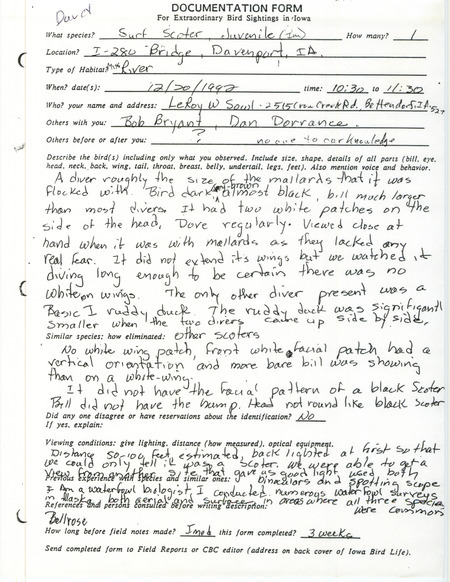 David
DOCUMENTATION FORM
For Extraordinary Bird Sightings in Iowa
What species? Surf Scoter, Juvenile (Im) How many? 1
Location? I-280 Bridge, Davenport, IA.
Type of Habitat? River
When? date(s): 12/20/1992 time: 10:30 to 11:30
Who? your name and address: LeRoy W Sowl - 2515 Crow Creek Rd. Bettendorf, IA
Others with you: Bob Bryant, Dan Dorrance
Others before or after you: ? no one to our knowledge
Describe the bird(s) including only what you observed. Include size, shape, details of all parts (bill, eye,
head, neck, back, wing, tail, throat, breast, belly, undertail, legs, feet). Also mention voice and behavior.
A diver roughly the size of the mallards that it was
flocked with. Bird dark brown almost black, bill much larger
than most divers. It had two white patches on the
side of the head, Dove regularly. Viewed close at
hand when it was with mallards as they lacked any
real fear. It did not extend its wings but we watched it
diving long enough to be certain there was no
white on wings. The only other diver present was a
Basic I ruddy duck. The ruddy duck was significantl
smaller when the two divers came up side by side.
Similar species: how eliminated: other scoters
No white wing patch, front white facial patch had a
vertical orientation and more bare bill was showing
than on a white-wing.
It did not have the facial pattern of a black Scoter
Bill did not have the hump. Head not round like black Scoter
Did any one disagree or have reservations about the identification? No
If yes, explain:
Viewing conditions: give lighting, distance (how measured), optical equipment.
Distance 50-100 feet estimated, back lighted at first so that
we could only tell it was a scoter. We were able to get a
view from another site that gave us good light. used both
Previous experience with species and similar ones: binoculars and spotting scope
I am a waterfowl biologist, I conducted numerous waterfowl surveys
in Alaska, both aerial and surface, in areas where all three species
References and persons consulted before writing description: were common
Bellrose
How long before field notes made? Imed this form completed? 3 weeks
Send completed form to Field Reports or CBC editor (address on back cover of Iowa Bird Life).